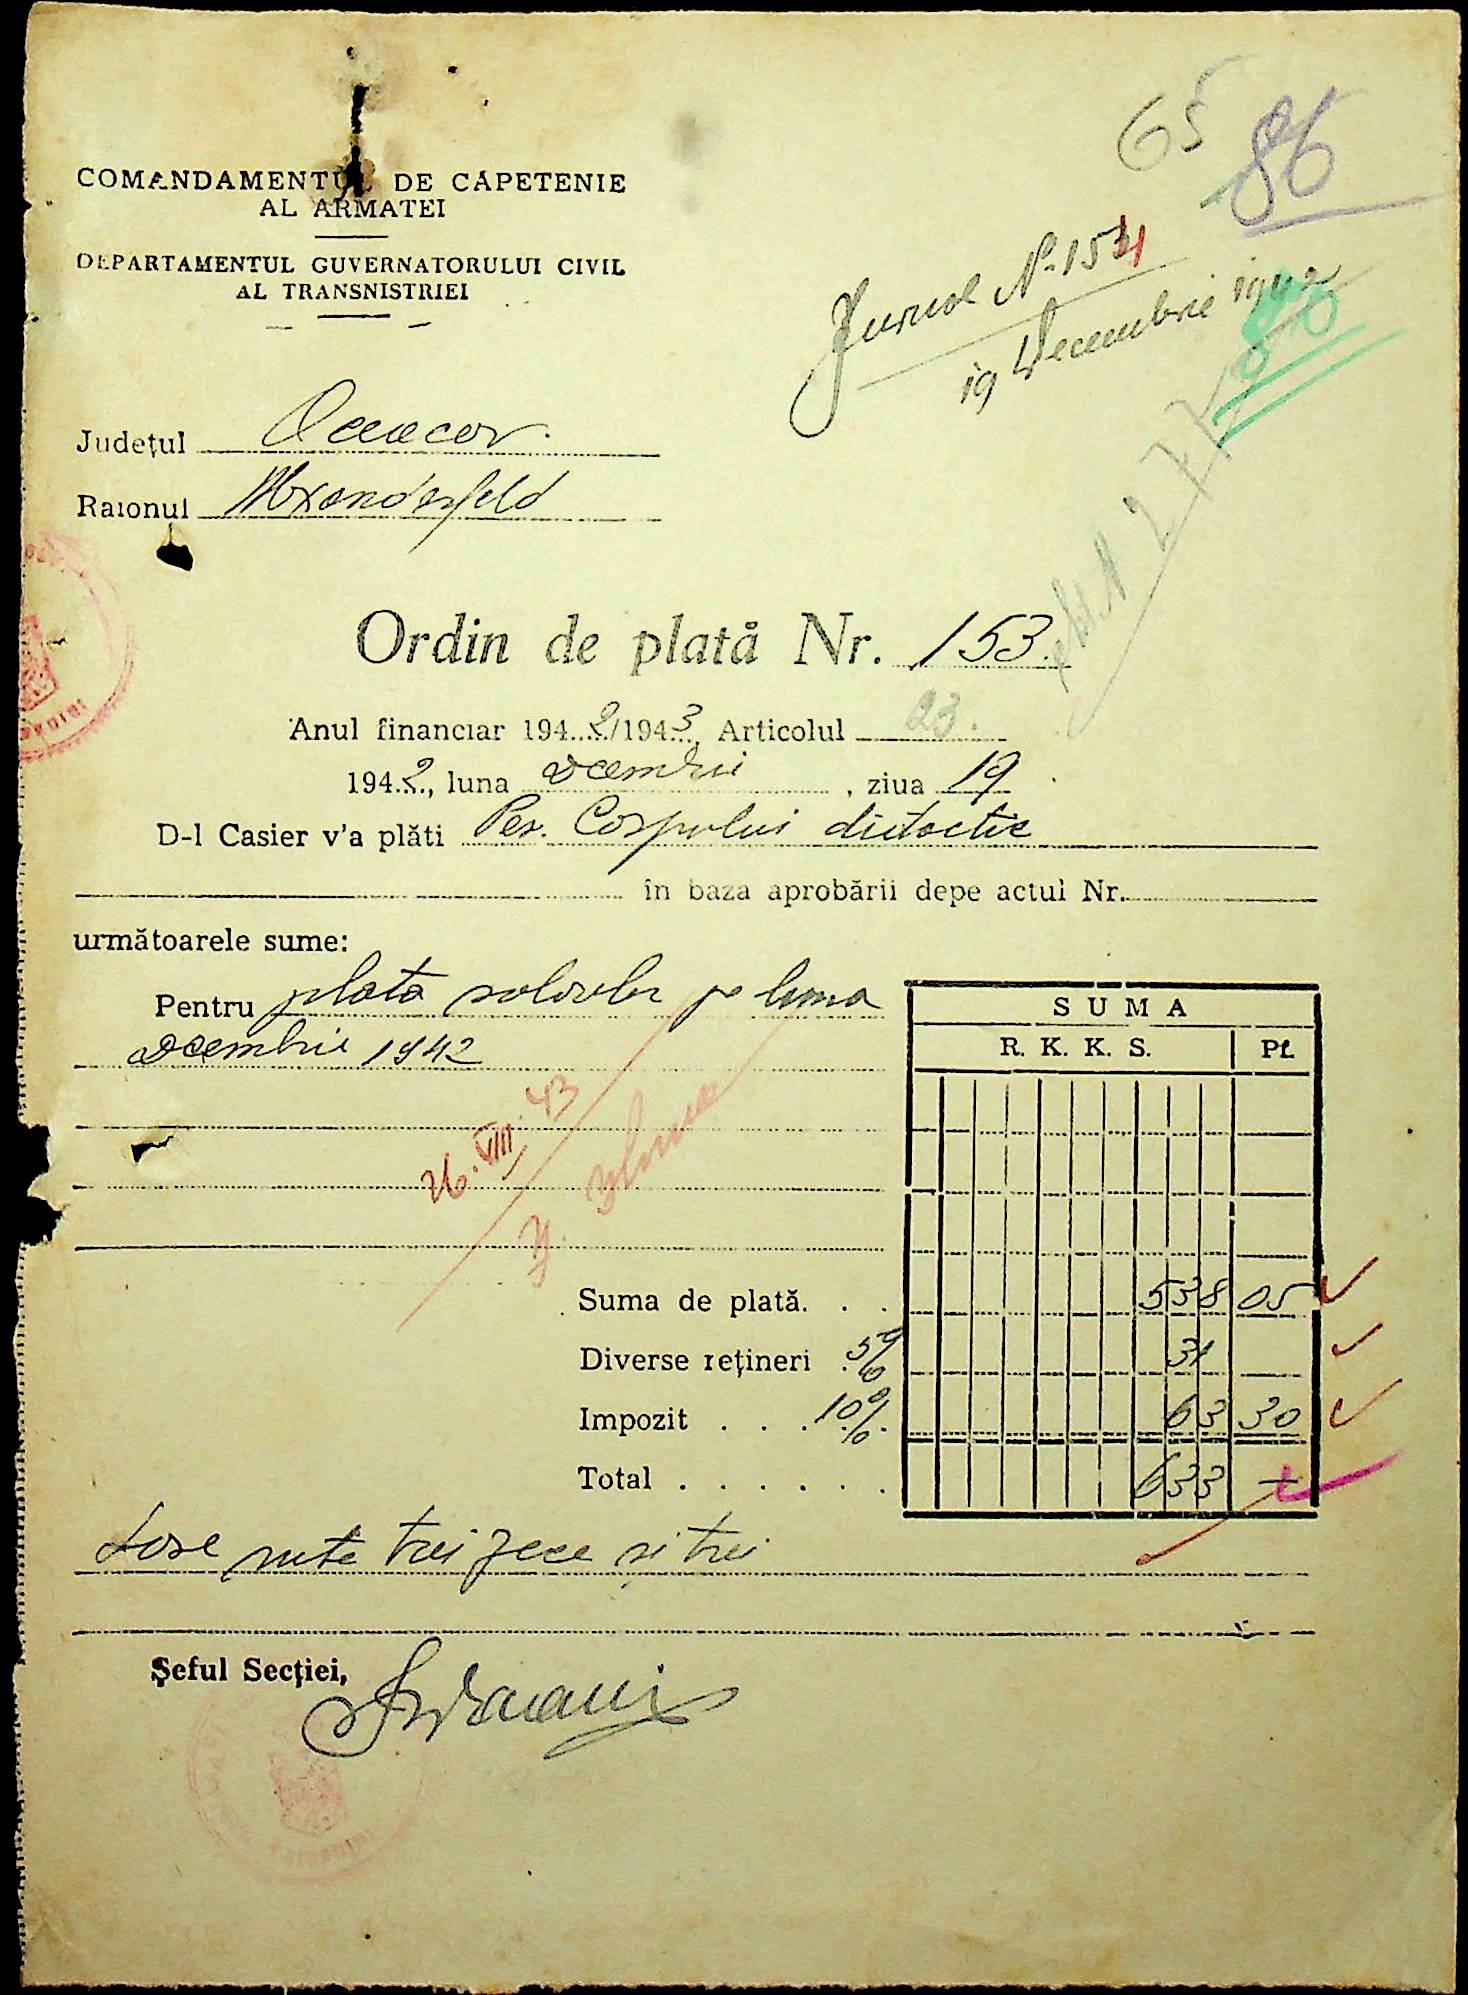 65
86
COMANDAMENTUL DE CĂPETENIE
AL ARMATEI
DEPARTAMENTUL GUVERNATORULUI CIVIL
AL TRANSNISTRIEI
Jurnal No. 1531
19 Decembrie 1942
80
Județul Oceacov.
Raionul Alexanderfeld
Ordin de plată Nr. 153.
Anul financiar 1942/1943, Articolul 23.
1942, luna Decembrie, ziua 19
D-l Casier v'a plăti Per. Corpului didactic
în baza aprobării depe actul Nr.
următoarele sume:
Pentru plata soldelor pe luna
Decembrie 1942
SUMA
R. K. K. S. Pf.
26.VIII.43
Suma de plată. . . 538 05
Diverse rețineri 5% 31
Impozit . . . 10% 63 30
Total . . . . . . 633 —
șase sute trei zece și trei
Șeful Secției,